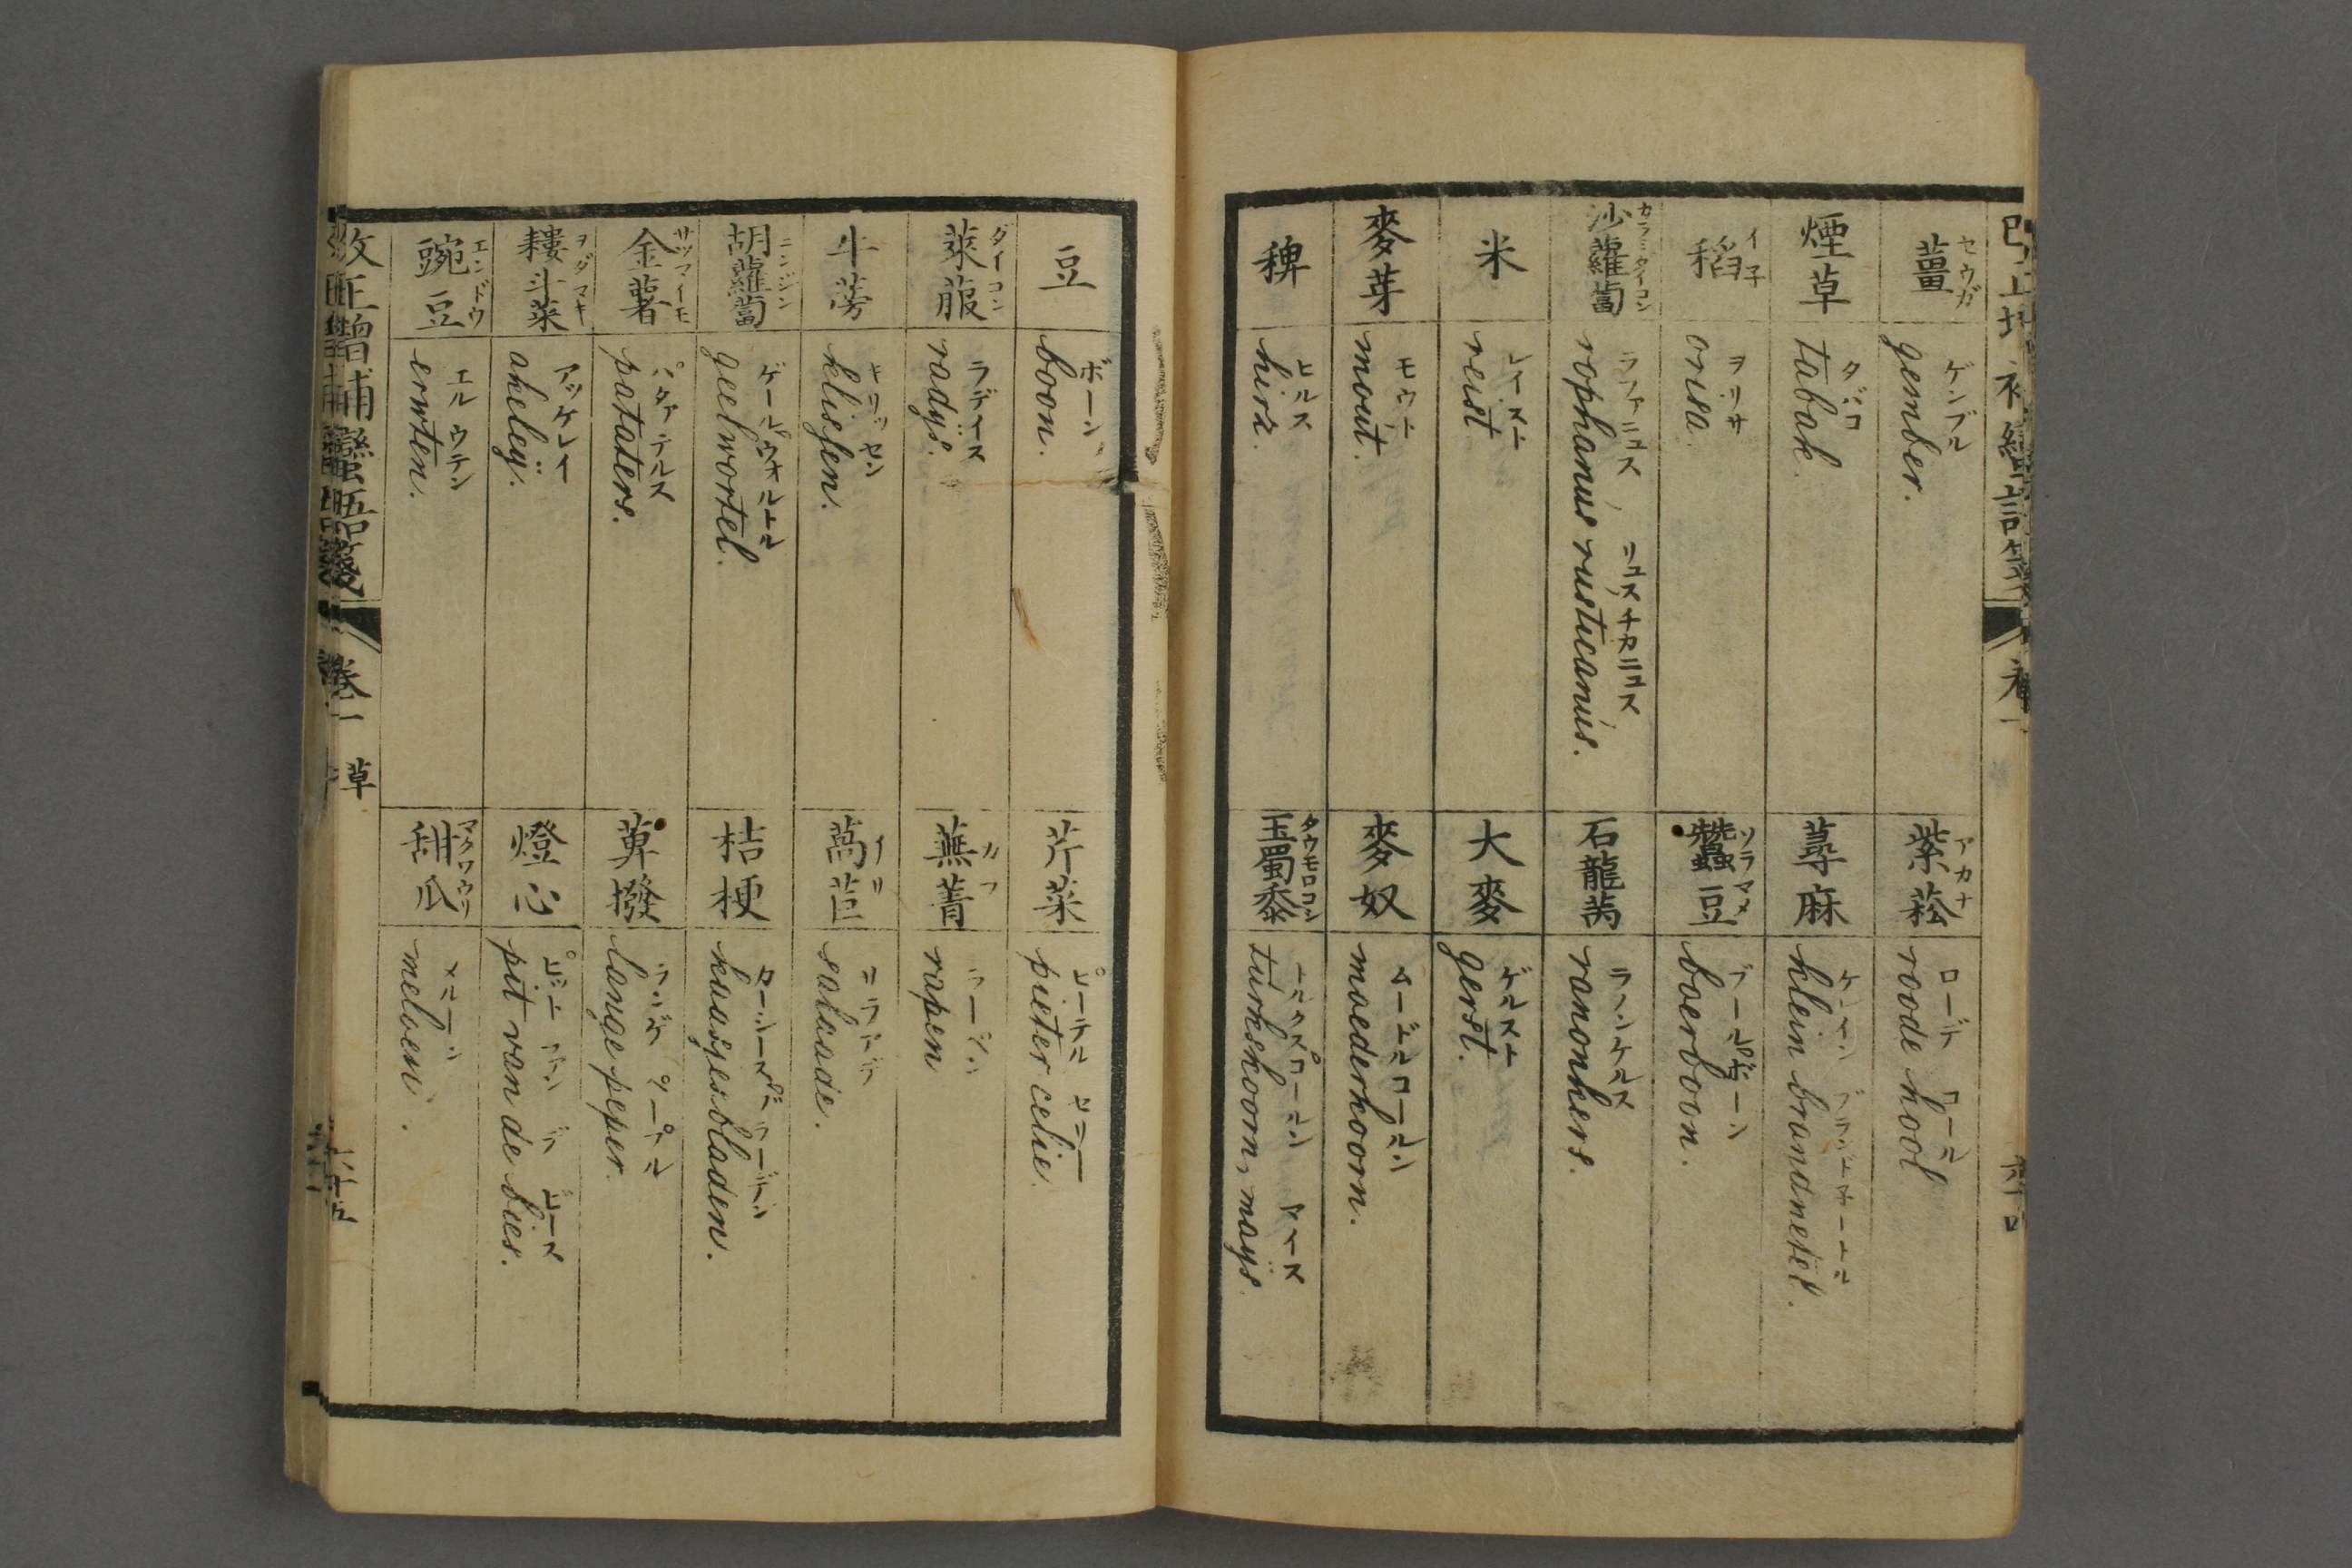 薑 セウガ
gember. ゲンブル
煙草
tabak. タバコ
稻 イ子
orisa. ヲリサ
沙蘿蔔 カラミタイコン
rophanus rusticanus. ラファニュス リュスチカニュス
米
reist レイスト
麥芽
mout. モウト
稗
hirs. ヒルス
紫菘 アカナ
roode kool ローデ コール
蕁麻
klein brandnetel.
蠶豆 ソラマメ
boerboon. ブールボーン
石龍芮
ranonkers. ラノンケルス
大麥
gerst. ゲルスト
麥奴
moederkoorn. ムードルコールン
玉蜀黍 タウモロコシ
turkskoorn, mays. マイス
豆
boon. ボーン
萊菔 ダイコン
radys. ラディイス
牛蒡
klissen. キリッセン
胡蘿蔔 ニンジン
geelwortel. ゲールウォルトル
金薯 サツマイモ
pataters. パタァテルス
耬斗菜 ヲダマキ
akeley. アッケレイ
豌豆 エンドウ
erwten. エルウテン
芹菜
pieter celie. ピーテル セリー
蕪菁 カブ
rapen
萵苣
salaade. サラアデ
桔梗
kaasjesbladen.
蓽撥
lange peper.
燈心
pit van de bies. ピット ファン デ ビース
甜瓜 マクワウリ
meloen. メルーン
改正增補蠻語箋 卷一 草